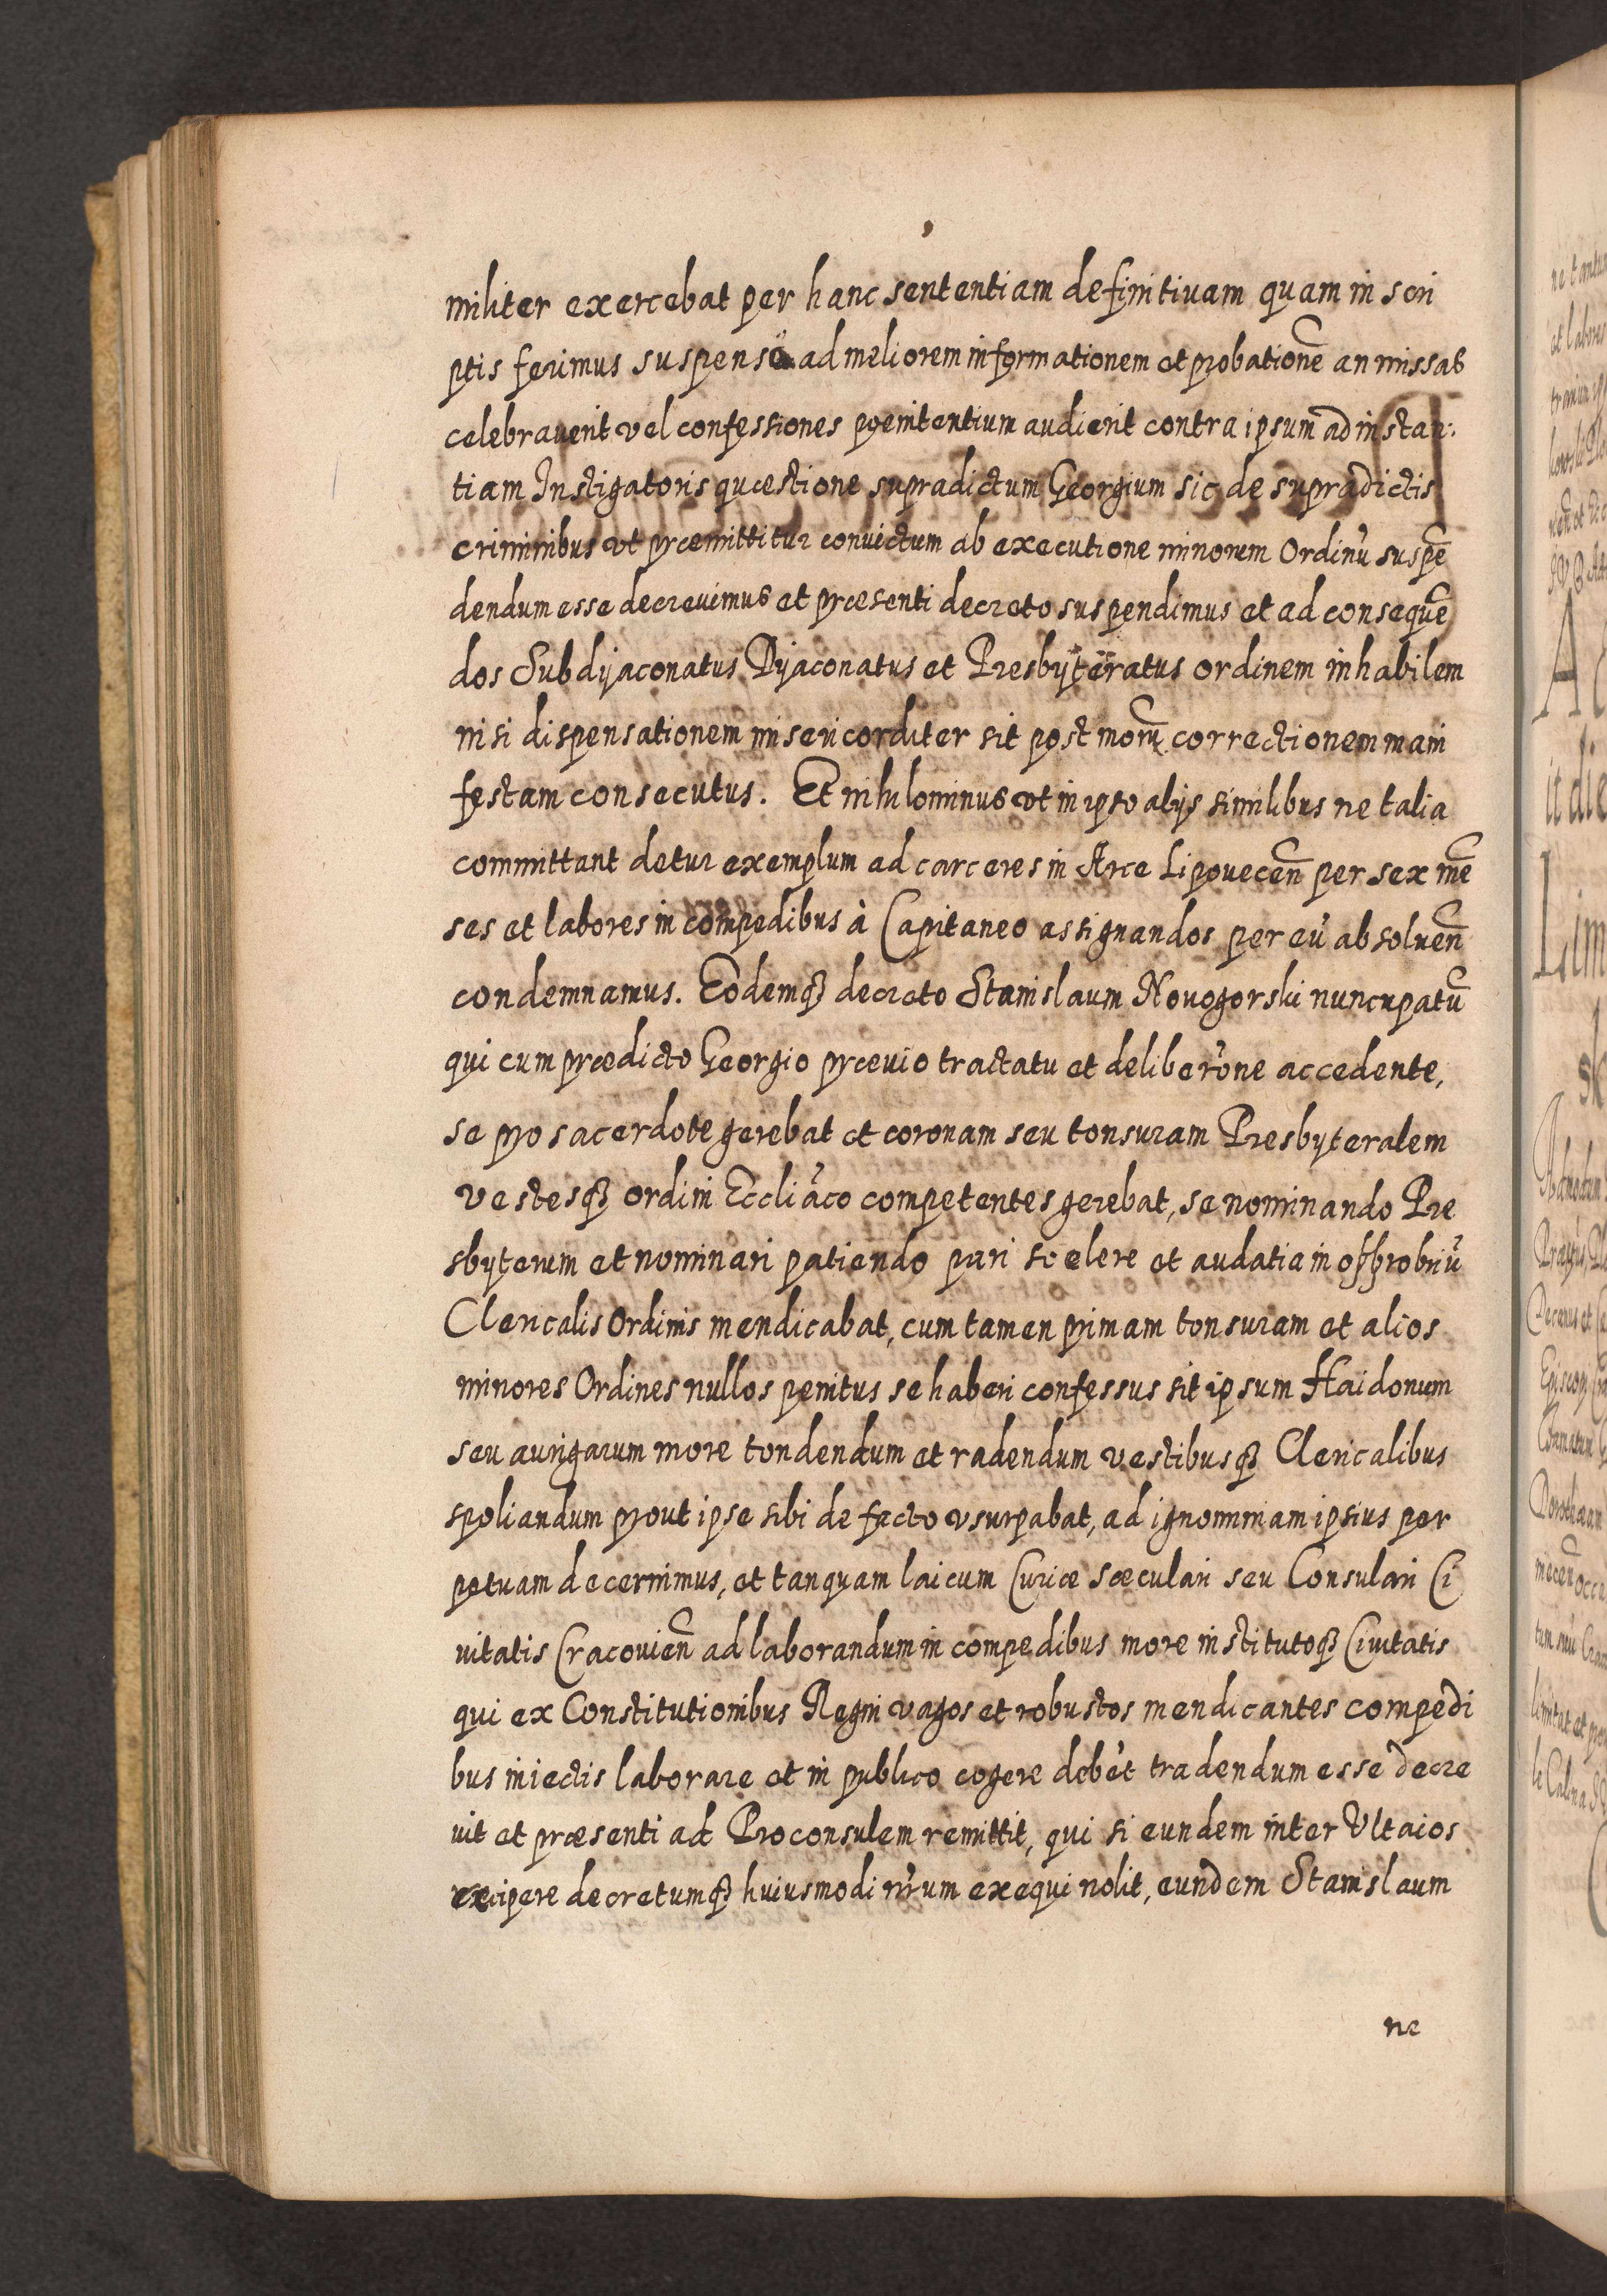 militer exercebat per hanc sententiam definitiuam quam in scri
ptis ferimus suspensa ad meliorem informationem et probationē an missas
celebrauerit vel confessiones poenitentium audierit contra ipsum ad instan:
tiam Instigatoris quæstione supradictum Georgium sic de supradictis
criminibus vt præmittitur conuictum ab executione minorum Ordinū suspē
dendum esse decreuimus et præsenti decreto suspendimus et ad consequē
dos Subdyaconatus Dyaconatus et Presbyteratus ordinem inhabilem
nisi dispensationem misericorditer sit post morū correctionem mani
festam consecutus. Et nihilominus vt in ipso alijs similibus ne talia
committant detur exemplum ad carceres in Arce Lipouecen̄ per sex mē
ses et labores in compedibus à Capitaneo assignandos per eū absoluen̄
condemnamus. Eodemq₃ decreto Stanislaum Nouogorski nuncupatū
qui cum prædicto Georgio præuio tractatu et deliberōne accedente,
se pro sacerdote gerebat et coronam seu tonsuram Presbyteralem
vestesq₃ ordini Eccliāco competentes gerebat, se nominando Pre
sbyterum et nominari patiendo pari scelere et audatia in opprobriū
Clericalis Ordinis mendicabat, cum tamen primam tonsuram et alios
minores Ordines nullos penitus se haberi confessus sit ipsum Haidonum
seu aurigarum more tondendum et radendum vestibusq₃ Clericalibus
spoliandum prout ipse sibi de facto vsurpabat, ad ignominiam ipsius per
petuam decernimus, et tanquam laicum Curiæ sæculari seu Consulari Ci
uitatis Cracouien̄ ad laborandum in compedibus more institutoq₃ Ciuitatis
qui ex Constitutionibus Regni vagos et robustos mendicantes compedi
bus iniectis laborare et in publico cogere debēt tradendum esse decre
uit et præsenti ad Proconsulem remittit, qui si eundem inter Vltaios
excipere decretumq₃ huiusmodi nr̄um exequi nolit, eundem Stanislaum
ne